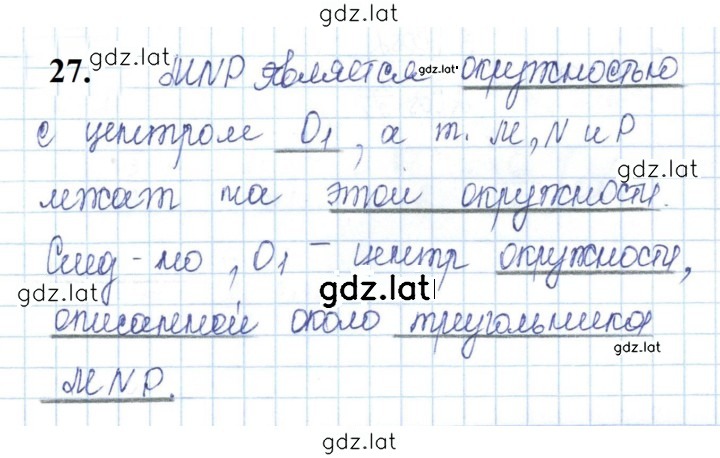 gdz.lat
27. gdz.lat MNP является gdz.lat окружностью
с центром O₁, а т. M, N и P
gdz.lat
лежат на этой окружности.
След-но, O₁ – центр окружности,
gdz.lat gdz.lat
описанной около треугольника
gdz.lat
MNP.
gdz.lat